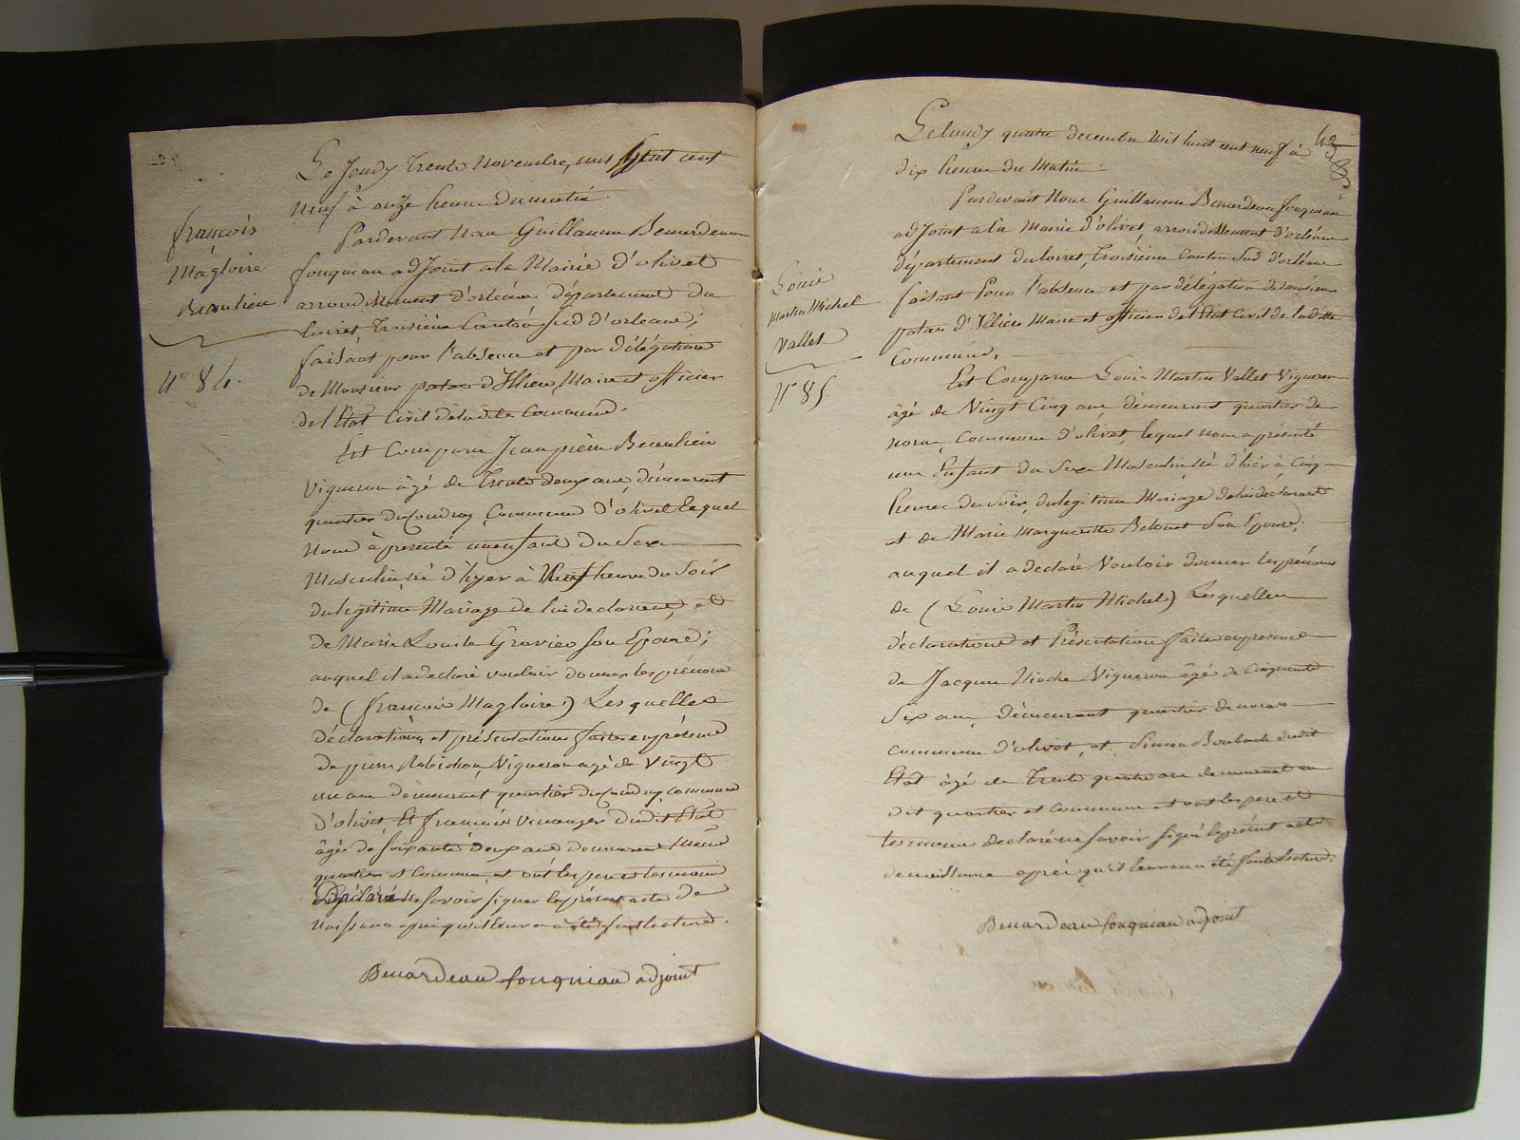 Le Jeudy Trente Novembre, mil huit cent
neuf à onze heure du matin
françois
Magloire
Beaulieu
N° 84.
Pardevant Nous Guillaume Benardeau
fouqueau adJoint a la Mairie d'olivet
arrondissement d'orleans département du
loiret, Troisième Canton Sud d'orleans;
faisant pour l'absence et par délégation
de Monsieur patas d'Illiers, Maire et officier
de l'Etat Civil de ladite Commune.
Est Comparu Jean pierre Beaulieu
Vigneron âgé de Trente deux ans, demeurant
quartier du Coudray, Commune d'olivet lequel
Nous à presenté un enfant du Sexe
Masculin, né d'hyer à Neuf heures du Soir
du legitime Mariage de lui declarant, et
de Marie Louise Gravier Son Epouse;
auquel il a declaré vouloir donner les prénoms
de (françois Magloire) Lesquelles
déclarations et présentations faites en présence
de pierre Vigneron agé de Vingt
un ans demeurant quartier du Coudray commune
d'olivet, Et françois dudit Etat
âgé de Soixante deux ans demeurant même
quartier et Commune, et ont les pere et temoins
Déclaré Ne Savoir signer le présent acte de
Naissance après qu'il leur en a été fait lecture.
Benardeau fouqueau adjoint
Le lundy quatre decembre mil huit cent neuf à
dix heures du Matin.
Louis
Martin Michel
Vallet
N° 85
Pardevant Nous Guillaume Benardeau fouqueau
adJoint a la Mairie d'olivet, arrondissement d'orléans
département du loiret, Troisième Canton Sud d'orléans
faisant Pour l'absence et par délégation de monsieur
patas d'Illiers Maire et officier de l'Etat Civil de ladite
Commune.
Est Comparu Louis Martin Vallet Vigneron
âgé de Vingt Cinq ans demeurant quartier de
Commune d'olivet, lequel nous a présenté
un Enfant du Sexe Masculin, né d'hier à Cinq
heures du soir, du legitime Mariage de lui déclarant
et de Marie Marguerite Son Epouse;
auquel il a declaré Vouloir donner les prénoms
de (Louis Martin Michel) Lesquelles
déclarations et Présentations faites en présence
de Jacques Vigneron âgé de Cinquante
Six ans, Demeurant quartier de
commune d'olivet, et Simon dudit
Etat âgé de Trente quatre ans demeurant au
dit quartier et Commune et ont les pere et
temoins declaré ne Savoir signé le présent acte
de naissance après qu'il leur en a été faite lecture.
Benardeau fouqueau adjoint